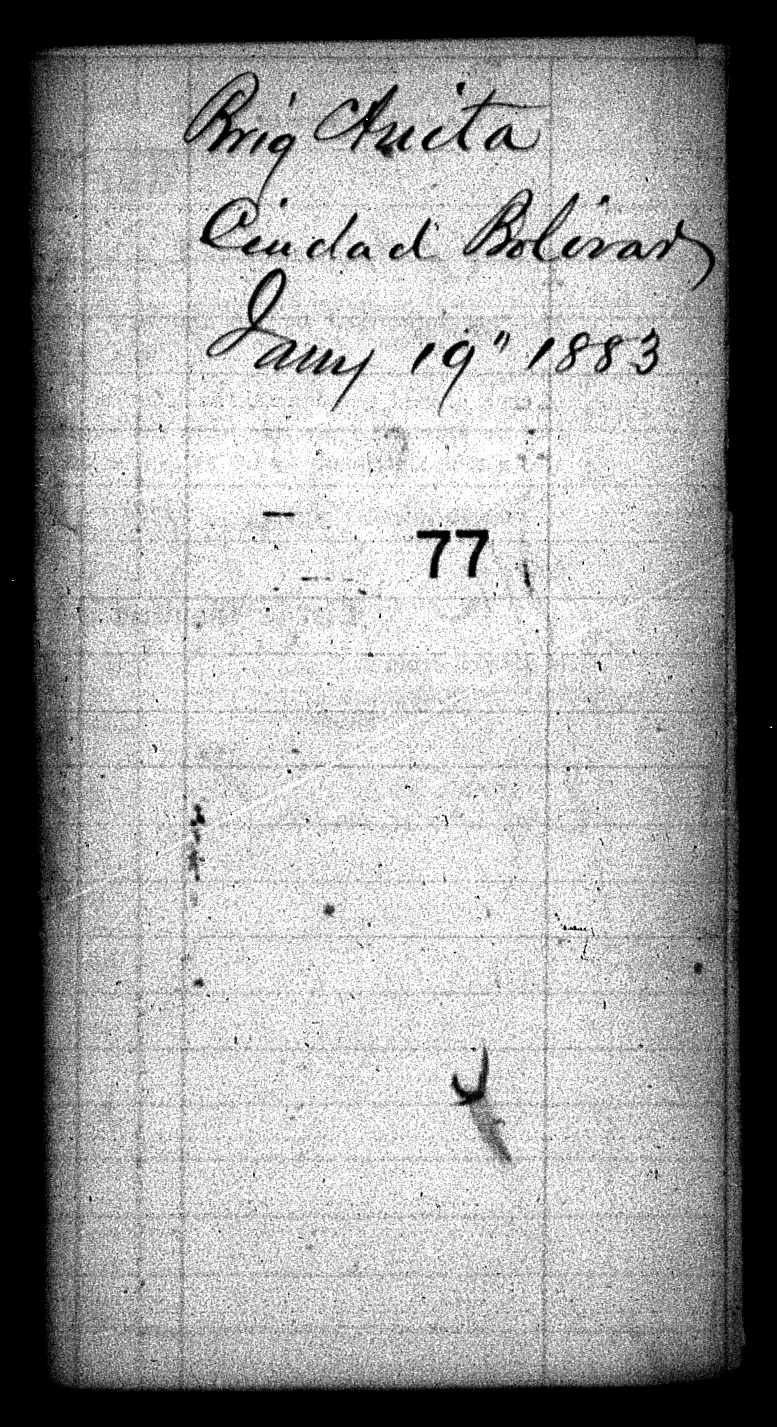 Brig Anita
Ciudad Bolivar
Jany 19" 1883
77